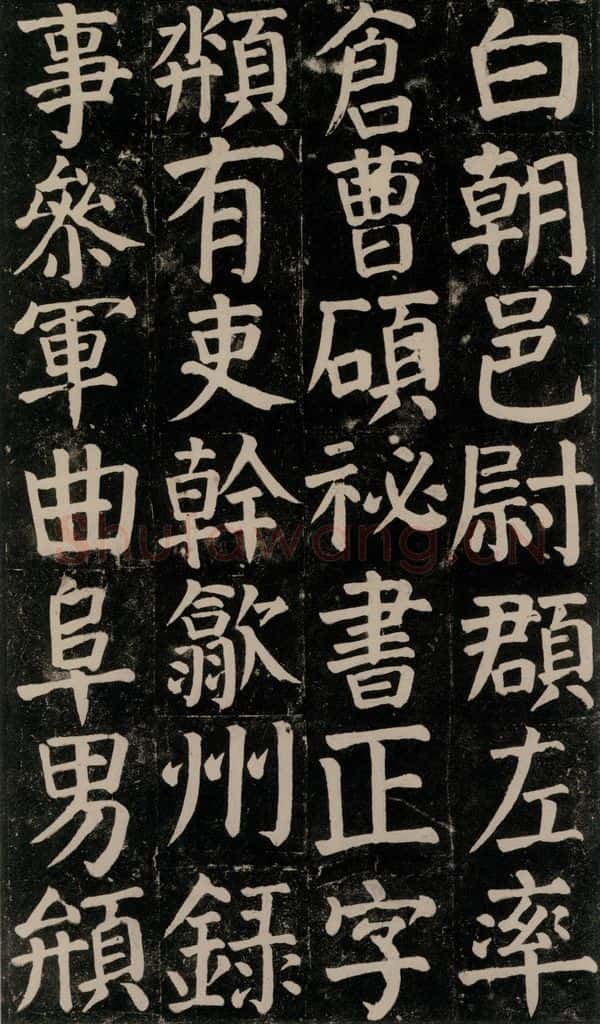 白朝邑尉頵左率
倉曹碩祕書正字
有吏幹歙州錄
事參軍曲阜男
shufawang.cn